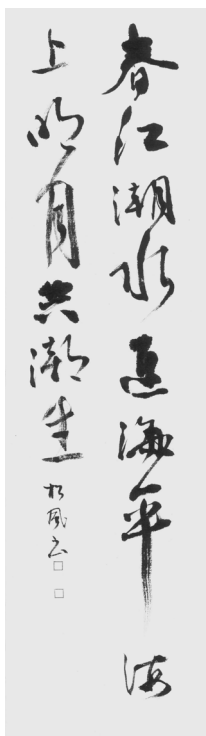 春江潮水連海平海
上明月共潮生
松風書